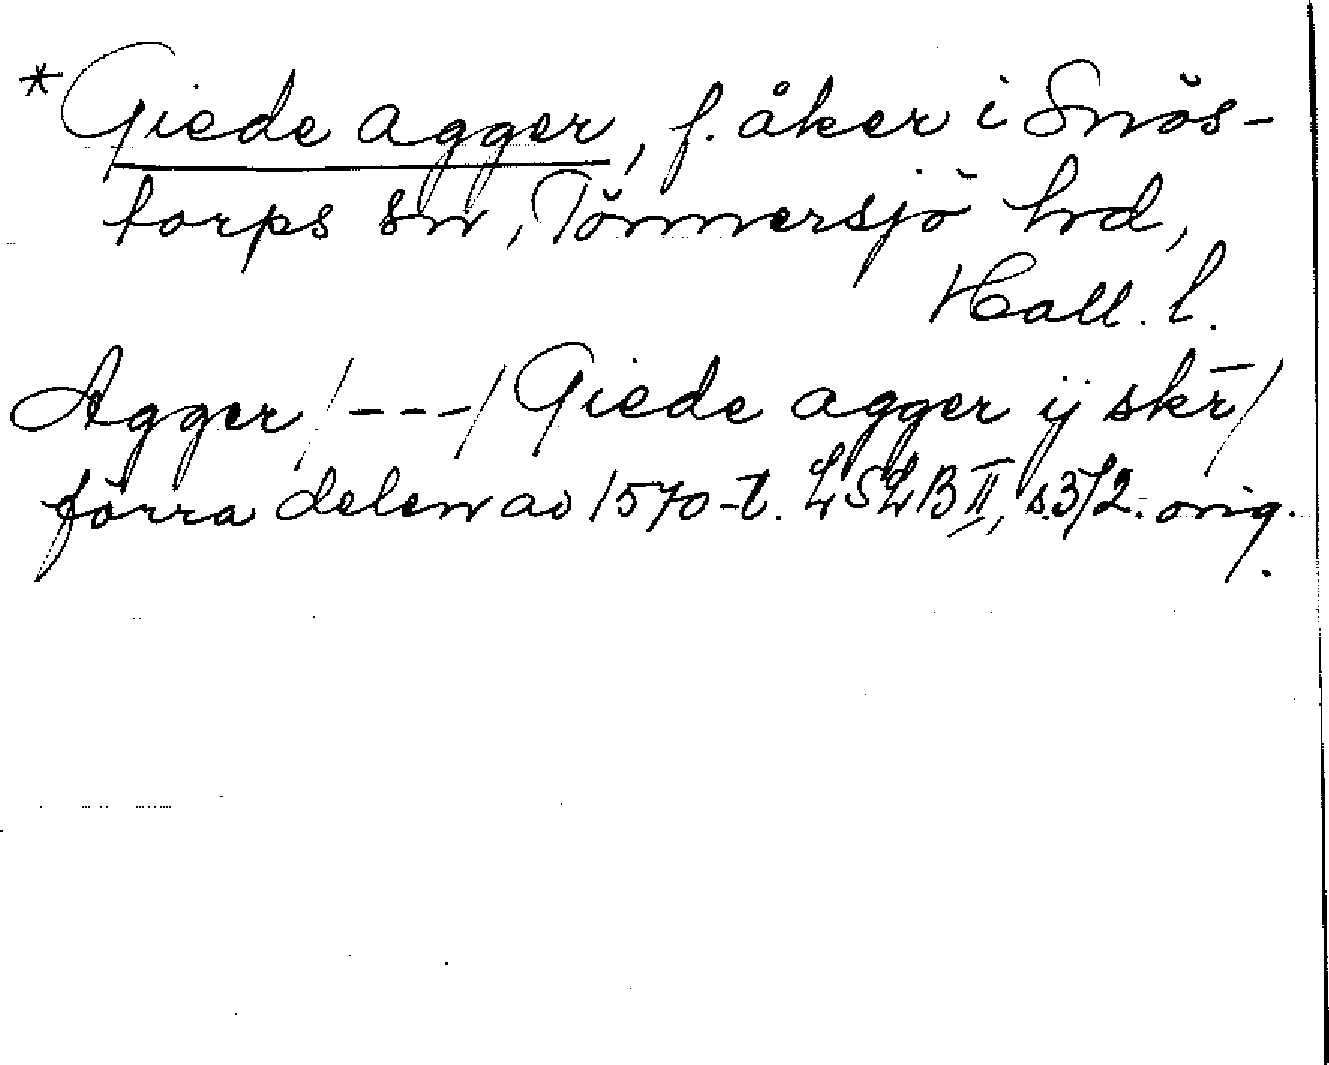 *Giede agger, f. åker i Snös-
torps sn, Tönnersjö hd,
Hall. l.
Agger /---/ Giede agger ij skr̄/
förra delen av 1570-t. LSLB II, s. 312. orig.